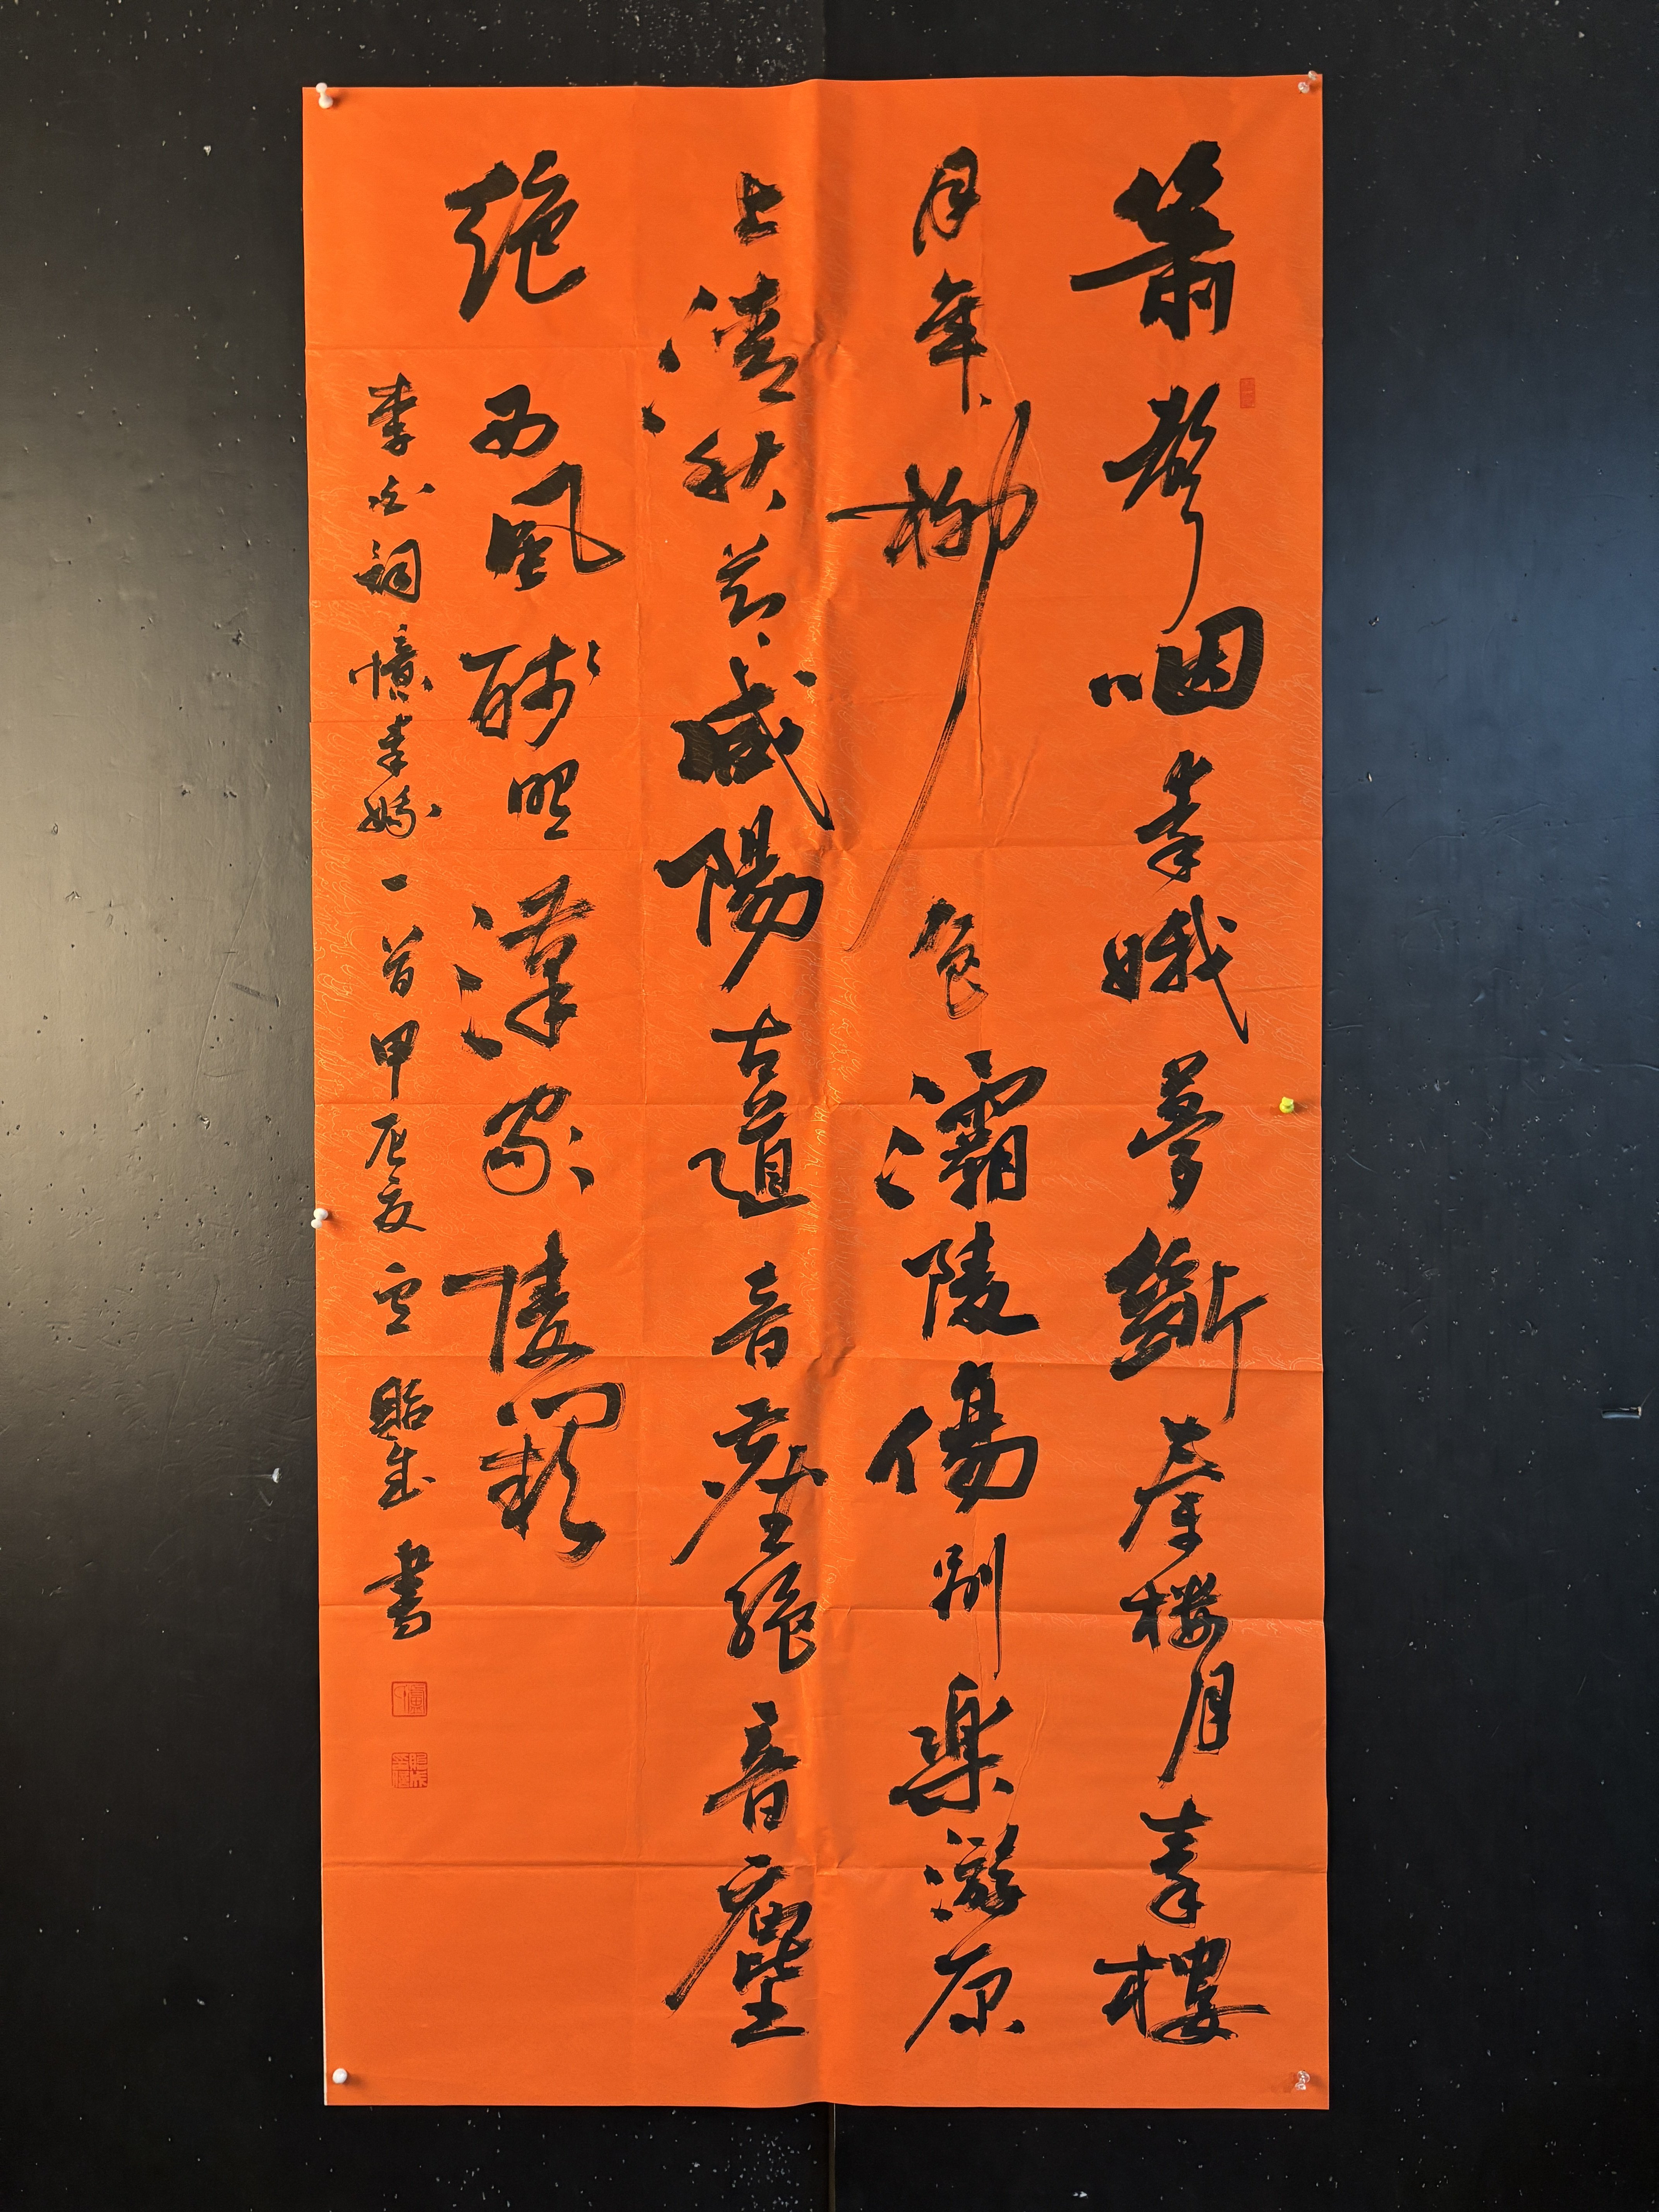 簫聲咽秦娥夢斷秦樓月秦樓
月年々柳色灞陵傷別楽游原
上清秋節咸陽古道音塵絕音塵
絕西風殘照漢家陵闕
李白詞憶秦娥一首甲辰夏雲貽成書